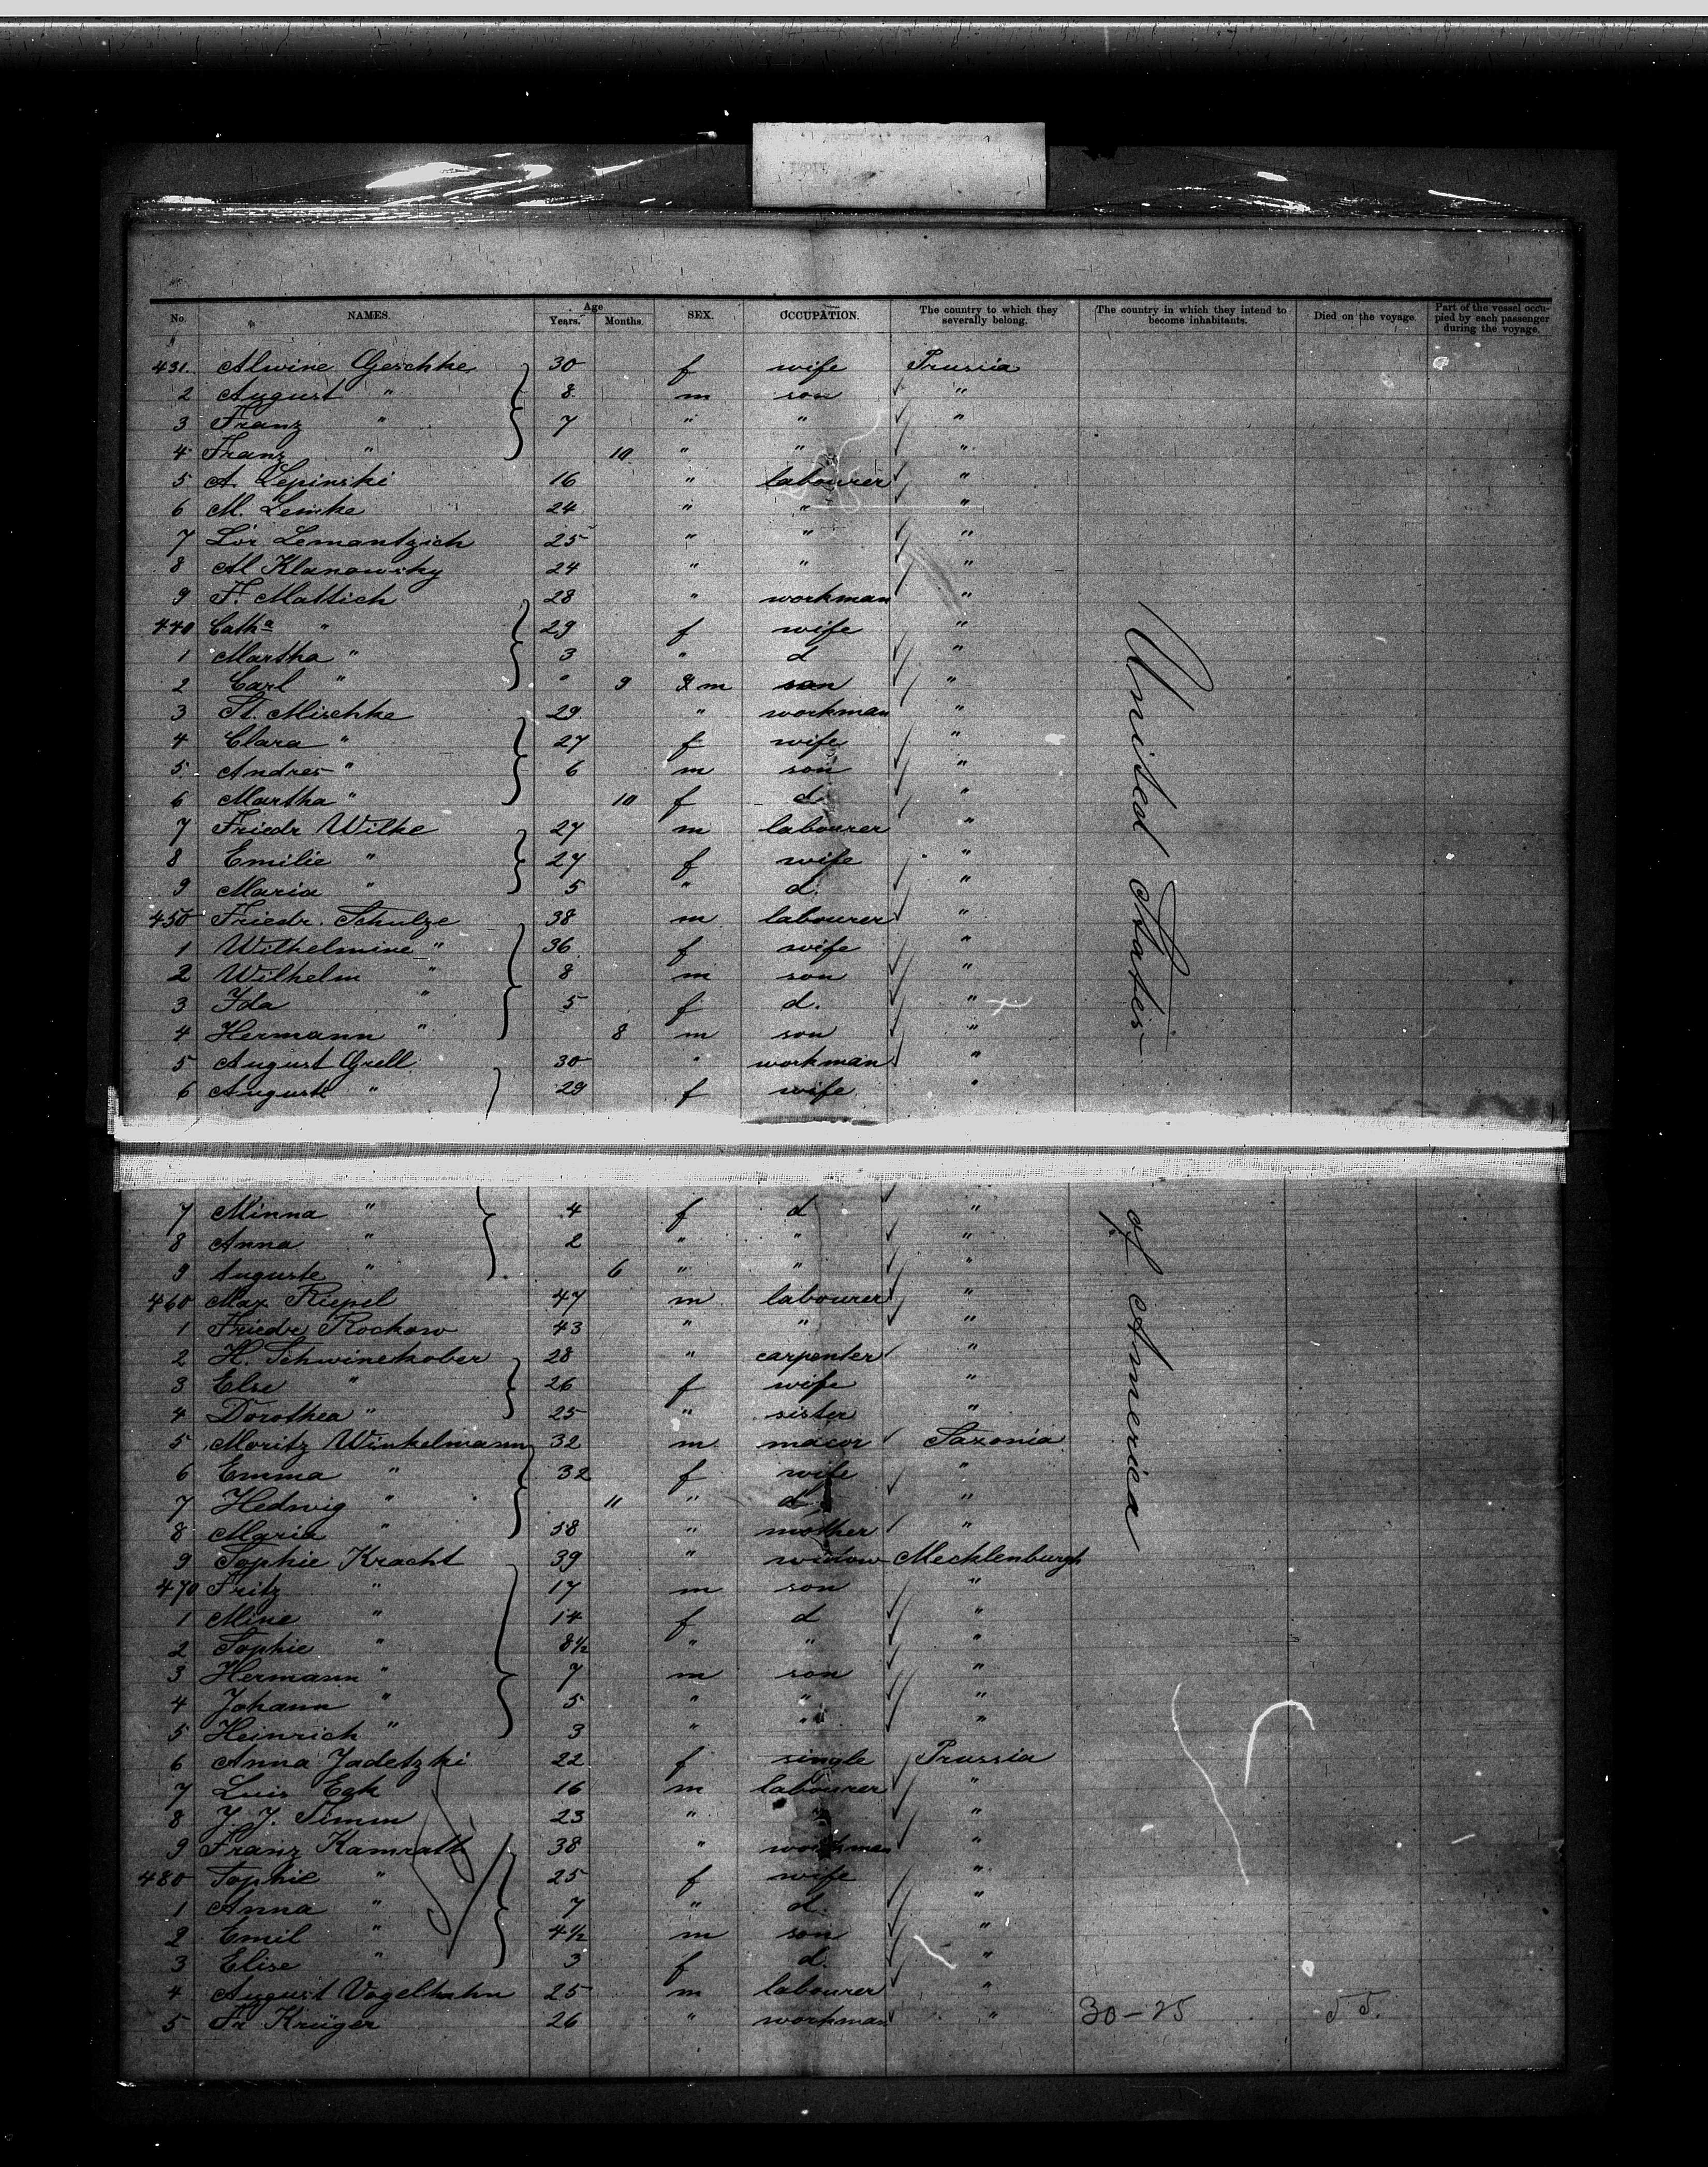 No. NAMES. Age Years. Months. SEX. OCCUPATION. The country to which they severally belong. The country in which they intend to become inhabitants. Died on the voyage. Part of the vessel occupied by each passenger during the voyage.
431. Alwine Geschke 30 f wife Prussia
2 August " 8 m son "
3 Franz " 7 " " "
4 Franz " 10 " " "
5 A. Lepinski 16 " labourer "
6 M. Lemke 24 " " "
7 Lor Lemantzich 25 " " "
8 Al Klanowsky 24 " " "
9 F. Mattich 28 " workman "
440 Catha " 29 f wife "
1 Martha " 3 " d "
2 Carl " " 9 m son "
3 St. Mischke 29 " workman "
4 Clara " 27 f wife "
5 Andres " 6 m son "
6 Martha " 10 f d "
7 Friedr Wilke 27 m labourer "
8 Emilie " 27 f wife "
9 Maria " 5 " d. "
450 Friedr. Schulze 38 m labourer "
1 Wilhelmine " 36 f wife "
2 Wilhelm " 8 m son "
3 Ida " 5 f d. "
4 Hermann " 8 m son "
5 August Grell 30 " workman "
6 Auguste " 29 f wife "
7 Minna " 4 f d "
8 Anna " 2 " " "
9 Auguste " 6 " " "
460 Max Riepel 47 m labourer "
1 Friedr Rockow 43 " " "
2 H. Schwinekober 28 " carpenter "
3 Else " 26 f wife "
4 Dorothea " 25 " sister "
5 Moritz Winkelmann 32 m macor Saxonia
6 Emma " 32 f wife "
7 Hedwig " 11 " d "
8 Maria " 58 " mother "
9 Sophie Kracht 39 " widow Mecklenburgh
470 Fritz " 17 m son "
1 Mine " 14 f d "
2 Sophie " 8½ " " "
3 Hermann " 7 m son "
4 Johann " 5 " " "
5 Heinrich " 3 " " "
6 Anna Jadetzki 22 f single Prussia
7 Luis Egk 16 m labourer "
8 J. J. Timm 23 " " "
9 Franz Kamrath 38 " workman "
480 Sophie " 25 f wife "
1 Anna " 7 " d. "
2 Emil " 4½ m son "
3 Elise " 3 f d. "
4 August Vogelhahn 25 m labourer "
5 Fr Krüger 26 " workman " 30-25
United States
of America